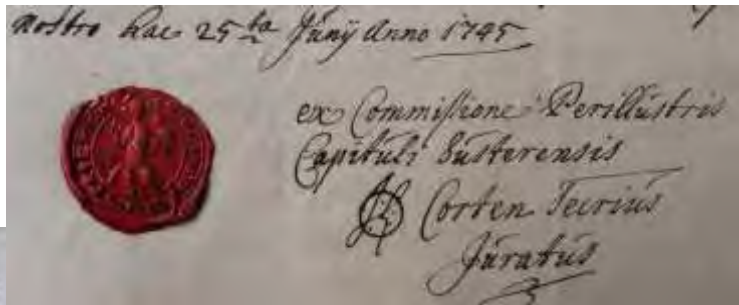 nostro hac 25ta Junÿ Anno 1745
ex Commissione Perillustris
Capituli Susterensis
Corten Secrius
Juratus